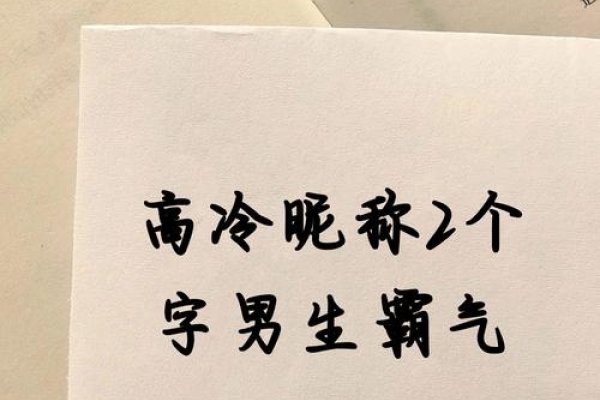 高冷昵称2个
字男生霸气